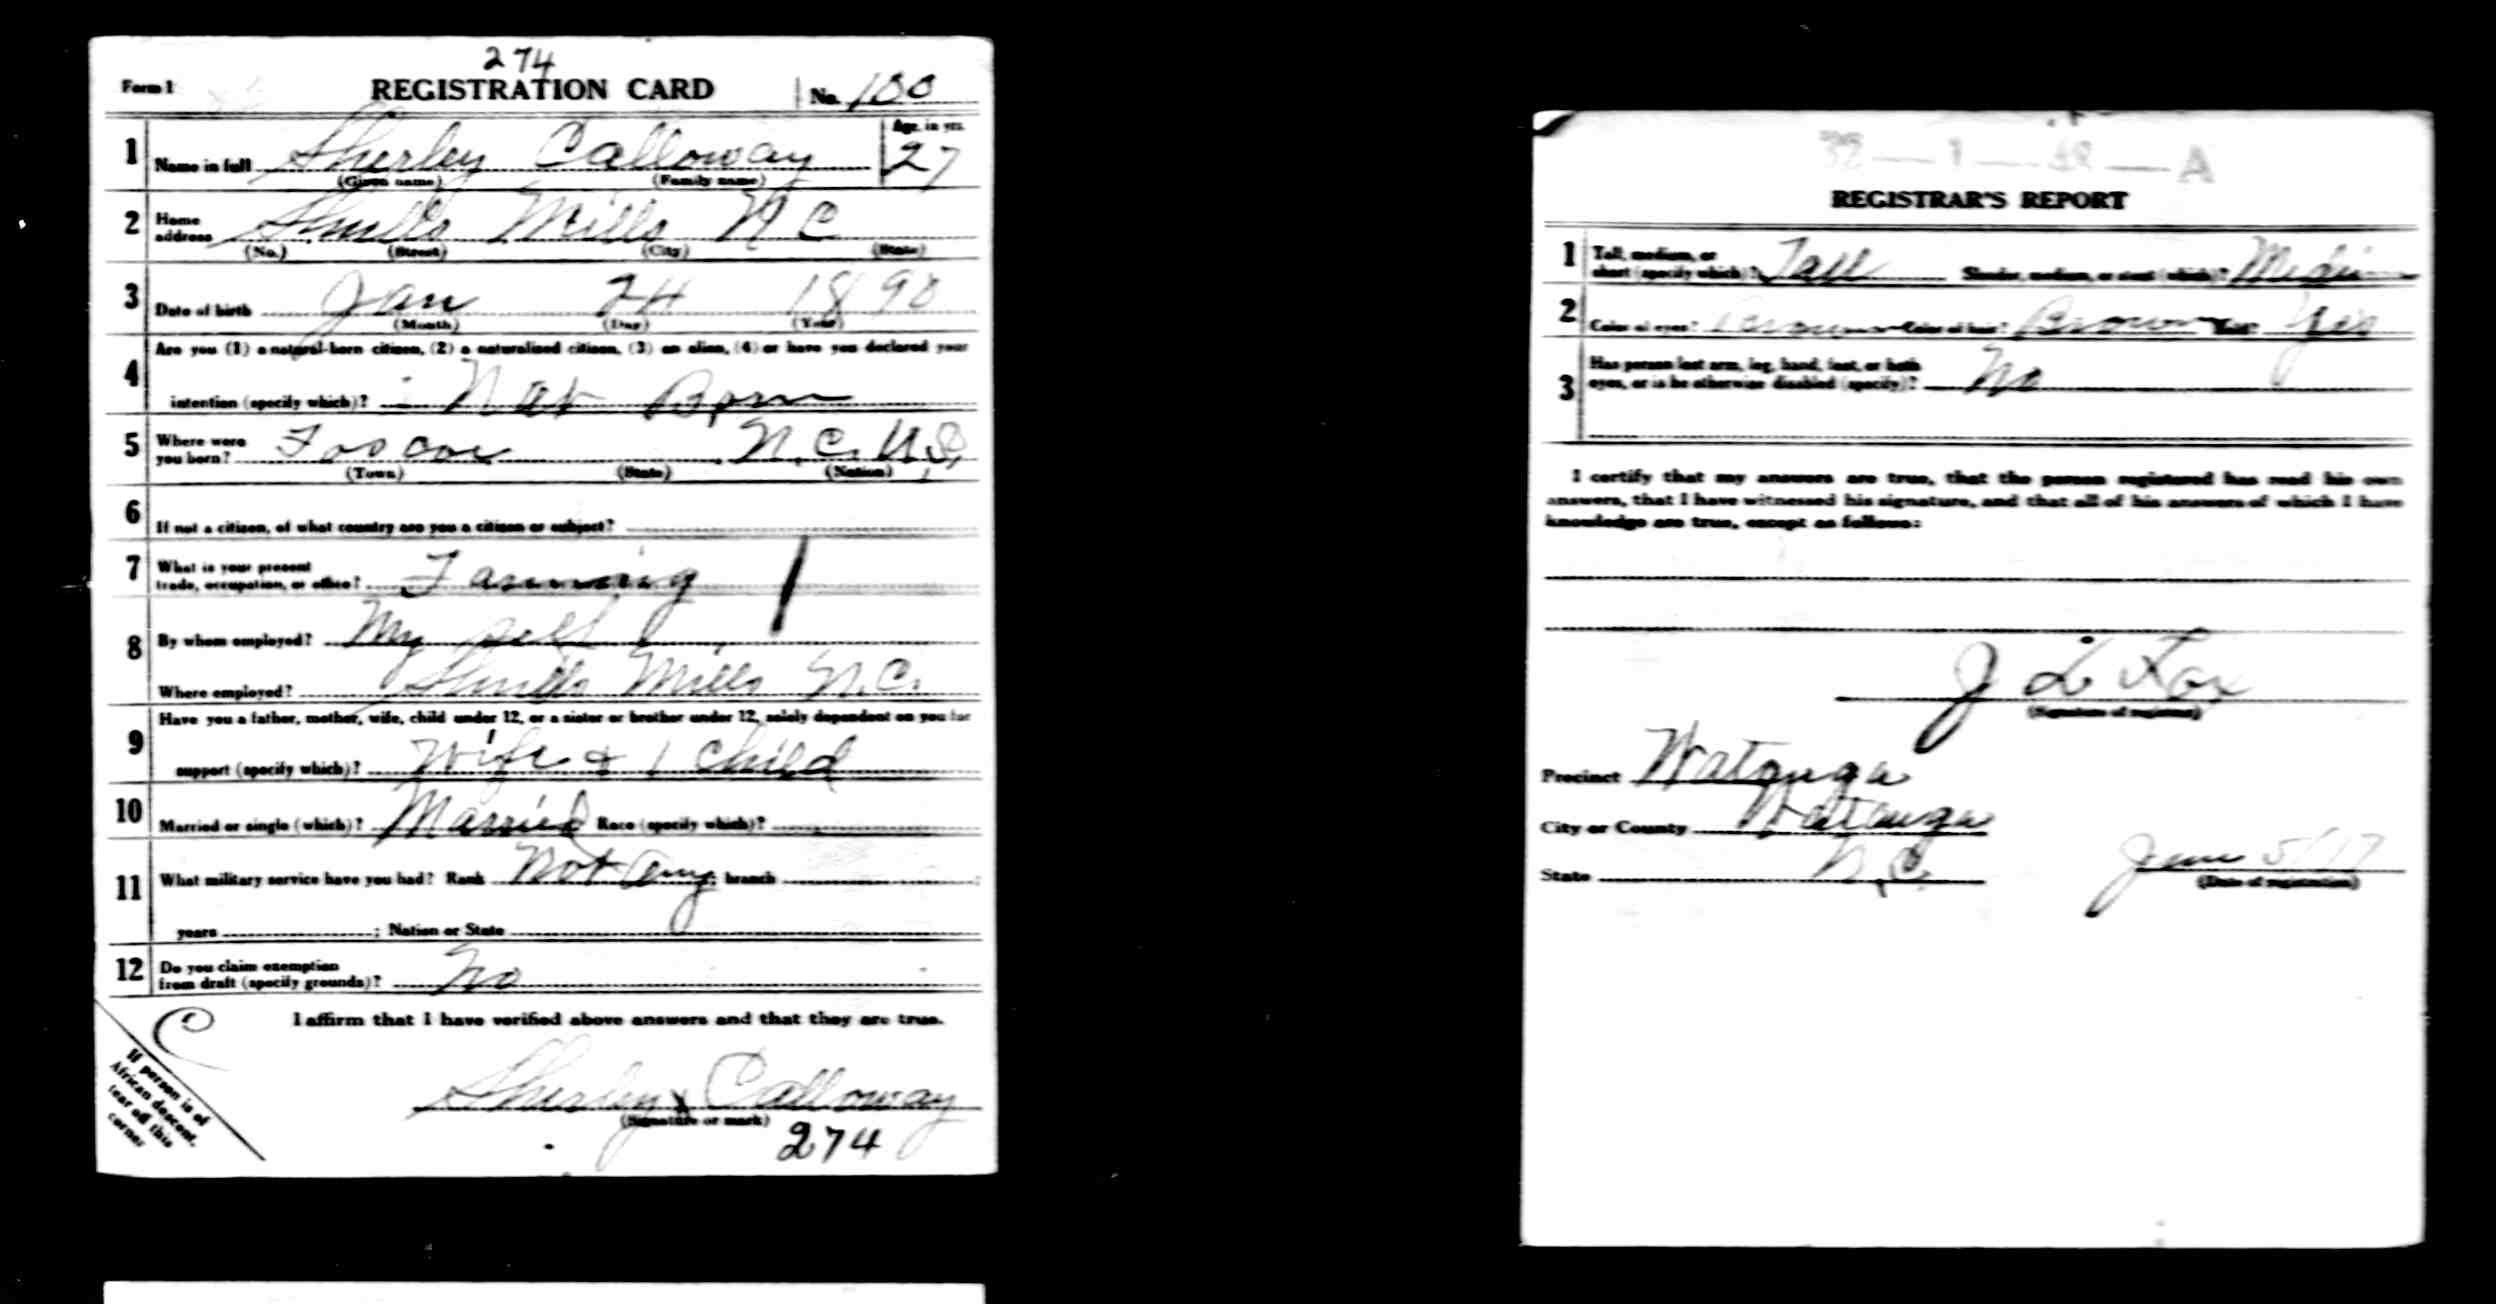 274
Form 1 REGISTRATION CARD No. 100
1 Name in full Sherley Calloway Age, in yrs. 27
(Given name) (Family name)
2 Home address Shulls Mills N C
(No.) (Street) (City) (State)
3 Date of birth Jan 24 1890
(Month) (Day) (Year)
4 Are you (1) a natural-born citizen, (2) a naturalized citizen, (3) an alien, (4) or have you declared your
intention (specify which)? Nat Born
5 Where were you born? Foscoe N.C. U.S.
(Town) (State) (Nation)
6 If not a citizen, of what country are you a citizen or subject?
7 What is your present trade, occupation, or office? Farming
8 By whom employed? My self
Where employed? Shulls Mills N.C.
9 Have you a father, mother, wife, child under 12, or a sister or brother under 12, solely dependent on you for
support (specify which)? Wife & 1 Child
10 Married or single (which)? Married Race (specify which)?
11 What military service have you had? Rank Not any; branch ;
years ; Nation or State
12 Do you claim exemption from draft (specify grounds)? No
C
I affirm that I have verified above answers and that they are true.
Sherley x Calloway
(Signature or mark)
274
If person is of
African descent,
tear off this
corner
32 — 1 — 12 — A
REGISTRAR'S REPORT
1 Tall, medium, or short (specify which)? Tall Slender, medium, or stout (which)? Medium
2 Color of eyes? Brown Color of hair? Brown Yes
3 Has person lost arm, leg, hand, foot, or both
eyes, or is he otherwise disabled (specify)? No
I certify that my answers are true, that the person registered has read his own
answers, that I have witnessed his signature, and that all of his answers of which I have
knowledge are true, except as follows:
J L Fox
(Signature of registrar)
Precinct Watauga
City or County Watauga
State N.C.
June 5/17
(Date of registration)